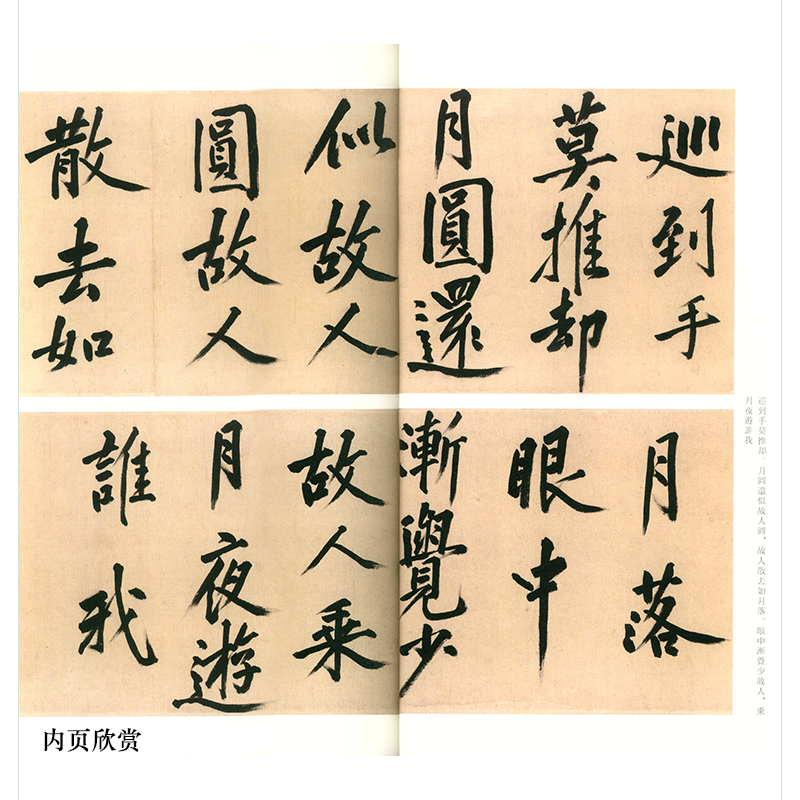 巡到手
莫推却
月圓還
似故人
圓故人
散去如
月落
眼中
漸覺少
故人乘
月夜遊
誰我
巡到手莫推却。月圓還似故人圓，故人散去如月落。眼中漸覺少故人，乘
月夜遊誰我
内页欣赏